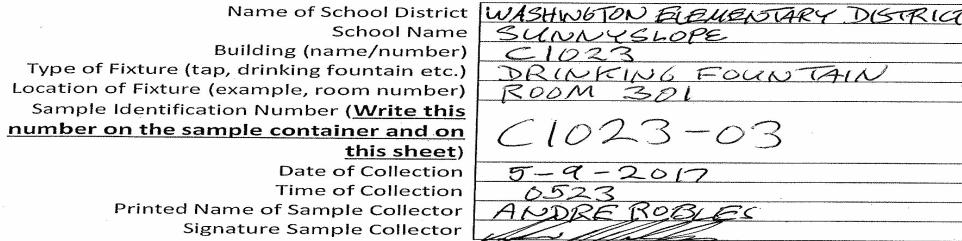 Name of School District WASHINGTON ELEMENTARY DISTRIC
School Name SUNNYSLOPE
Building (name/number) C1023
Type of Fixture (tap, drinking fountain etc.) DRINKING FOUNTAIN
Location of Fixture (example, room number) ROOM 301
Sample Identification Number (Write this
number on the sample container and on
this sheet) C1023-03
Date of Collection 5-9-2017
Time of Collection 0523
Printed Name of Sample Collector ANDRE ROBLES
Signature Sample Collector